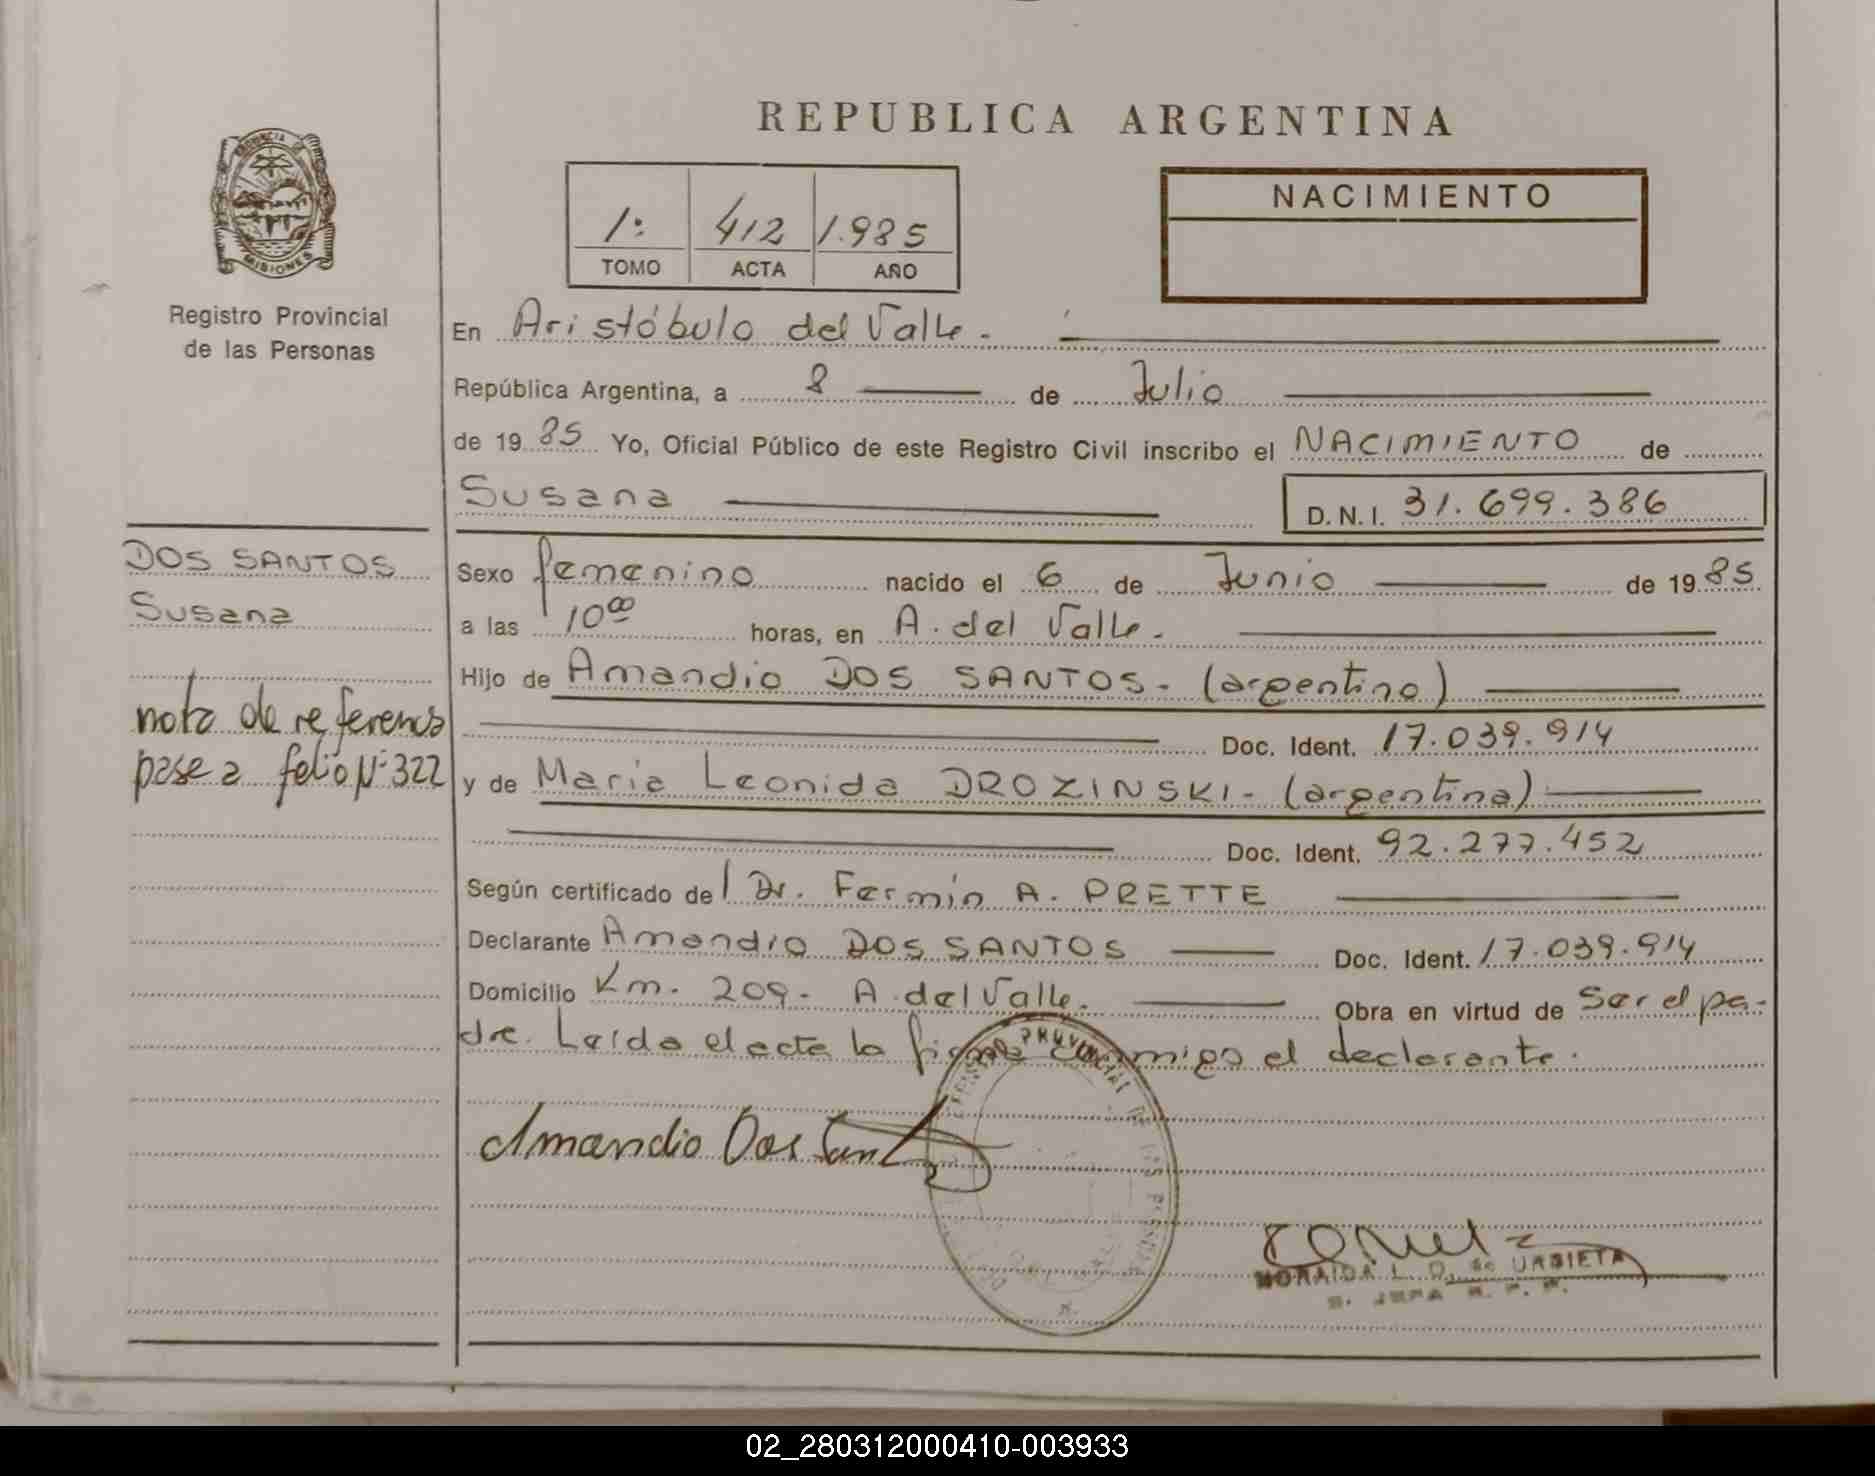 REPUBLICA ARGENTINA
PROVINCIA DE
MISIONES
Registro Provincial
de las Personas
1: 412 1.985
TOMO ACTA AÑO
NACIMIENTO
En Aristóbulo del Valle.
República Argentina, a 8 de Julio
de 19 85 Yo, Oficial Público de este Registro Civil inscribo el NACIMIENTO de
Susana D.N.I. 31.699.386
DOS SANTOS
Susana
nota de referencia
pase a folio Nº 322
Sexo femenino nacido el 6 de Junio de 19 85
a las 10 00 horas, en A. del Valle.
Hijo de Amandio DOS SANTOS. (argentino)
Doc. Ident. 17.039.914
y de Maria Leonida DROZINSKI. (argentina)
Doc. Ident. 92.277.452
Según certificado del Dr. Fermín A. PRETTE
Declarante Amandio DOS SANTOS Doc. Ident. 17.039.914
Domicilio Km. 209. A. del Valle. Obra en virtud de Ser el pa-
dre. Leída el acta la firma conmigo el declarante.
Amandio Dos Santos
REGISTRO PROVINCIAL DE LAS PERSONAS
MORAIDA L. D. de URBIETA
S. JEFA R. P. P.
02_280312000410-003933